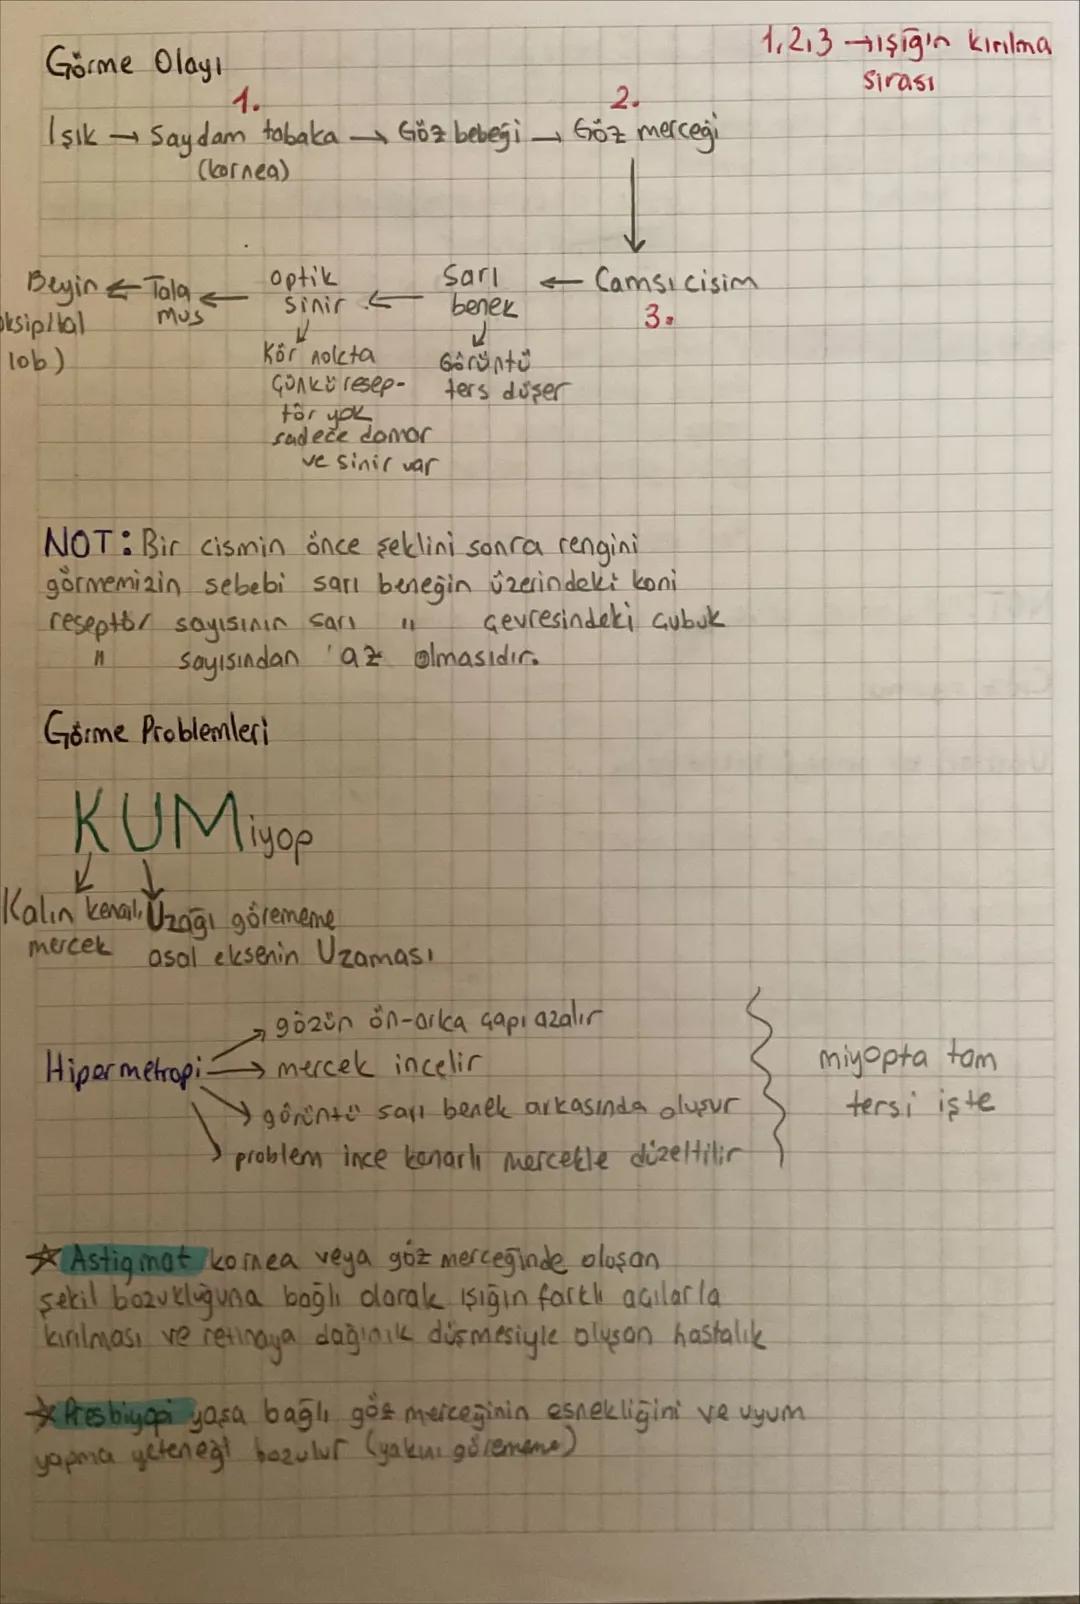 Görme Olayı
1,2,3 → ışığın kırılma
sırası
1. 2.
Işık → Saydam tabaka → Göz bebeği → Göz merceği
(kornea)
Beyin ← Tala ← optik ← Sarı ← Camsı cisim
mus sinir benek 3.
oksipital
lob)
Kör nokta
çünkü resep-
tör yok
sadece damar
ve sinir var
Görüntü
ters düşer
NOT: Bir cismin önce şeklini sonra rengini
görmemizin sebebi sarı beneğin üzerindeki koni
reseptör sayısının sarı " çevresindeki çubuk
" sayısından az olmasıdır.
Görme Problemleri
KUMiyop
Kalın kenarlı Uzağı görememe
mercek asal eksenin Uzaması
gözün ön-arka çapı azalır
Hipermetropi → mercek incelir
görüntü sarı benek arkasında oluşur
problem ince kenarlı mercekle düzeltilir
miyopta tam
tersi işte
☆ Astigmat kornea veya göz merceğinde oluşan
şekil bozukluğuna bağlı olarak ışığın farklı açılarla
kırılması ve retinaya dağınık düşmesiyle oluşan hastalık
☆ Presbiyopi yaşa bağlı göz merceğinin esnekliğini ve uyum
yapma yeteneği bozulur (yakını görememe)